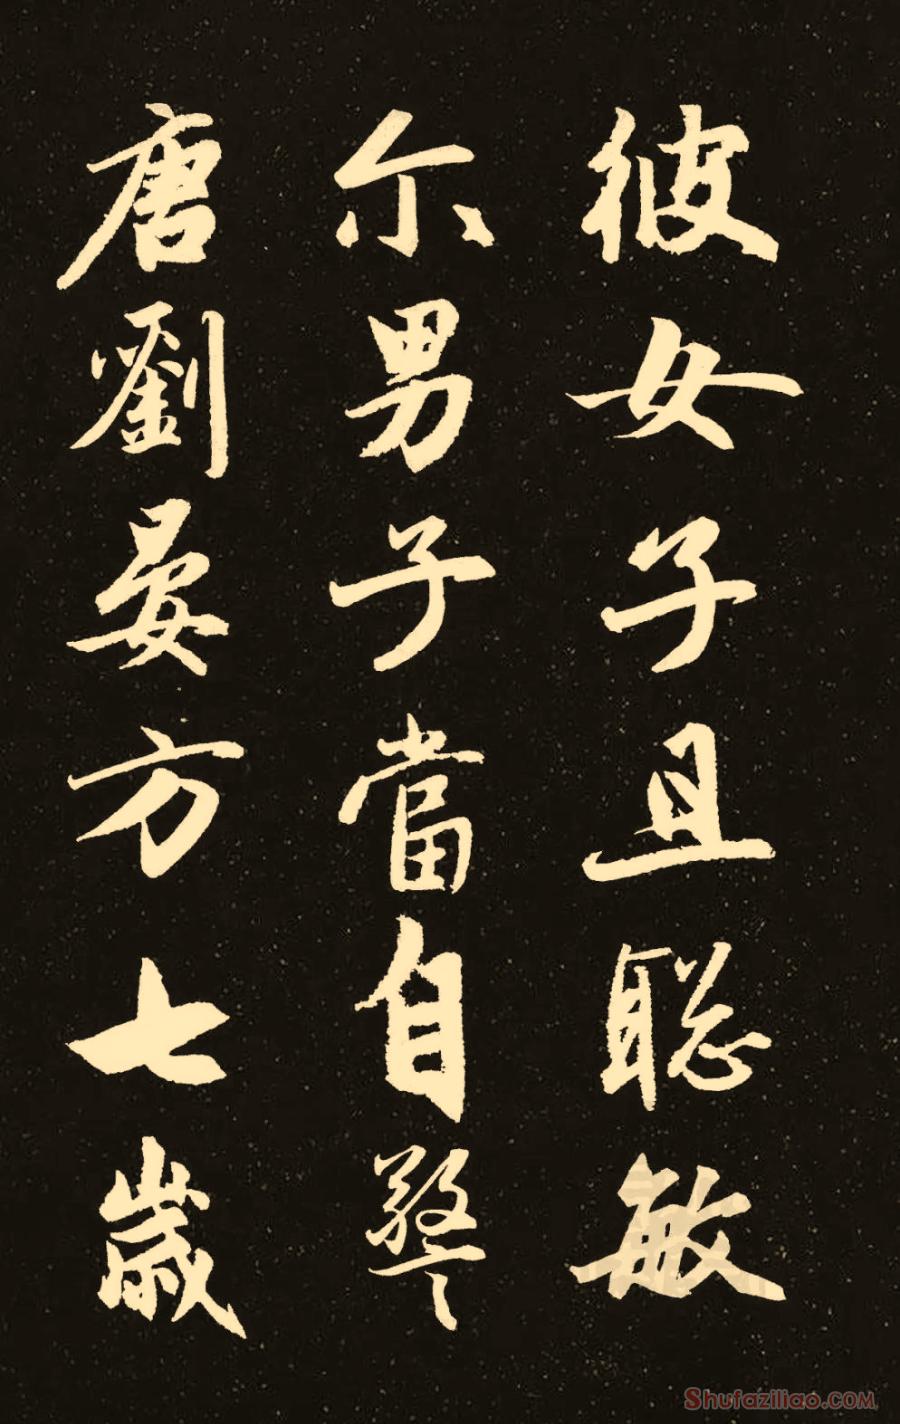 彼女子且聡敏
尒男子當自警
唐劉晏方七歲
Shufaziliao.com